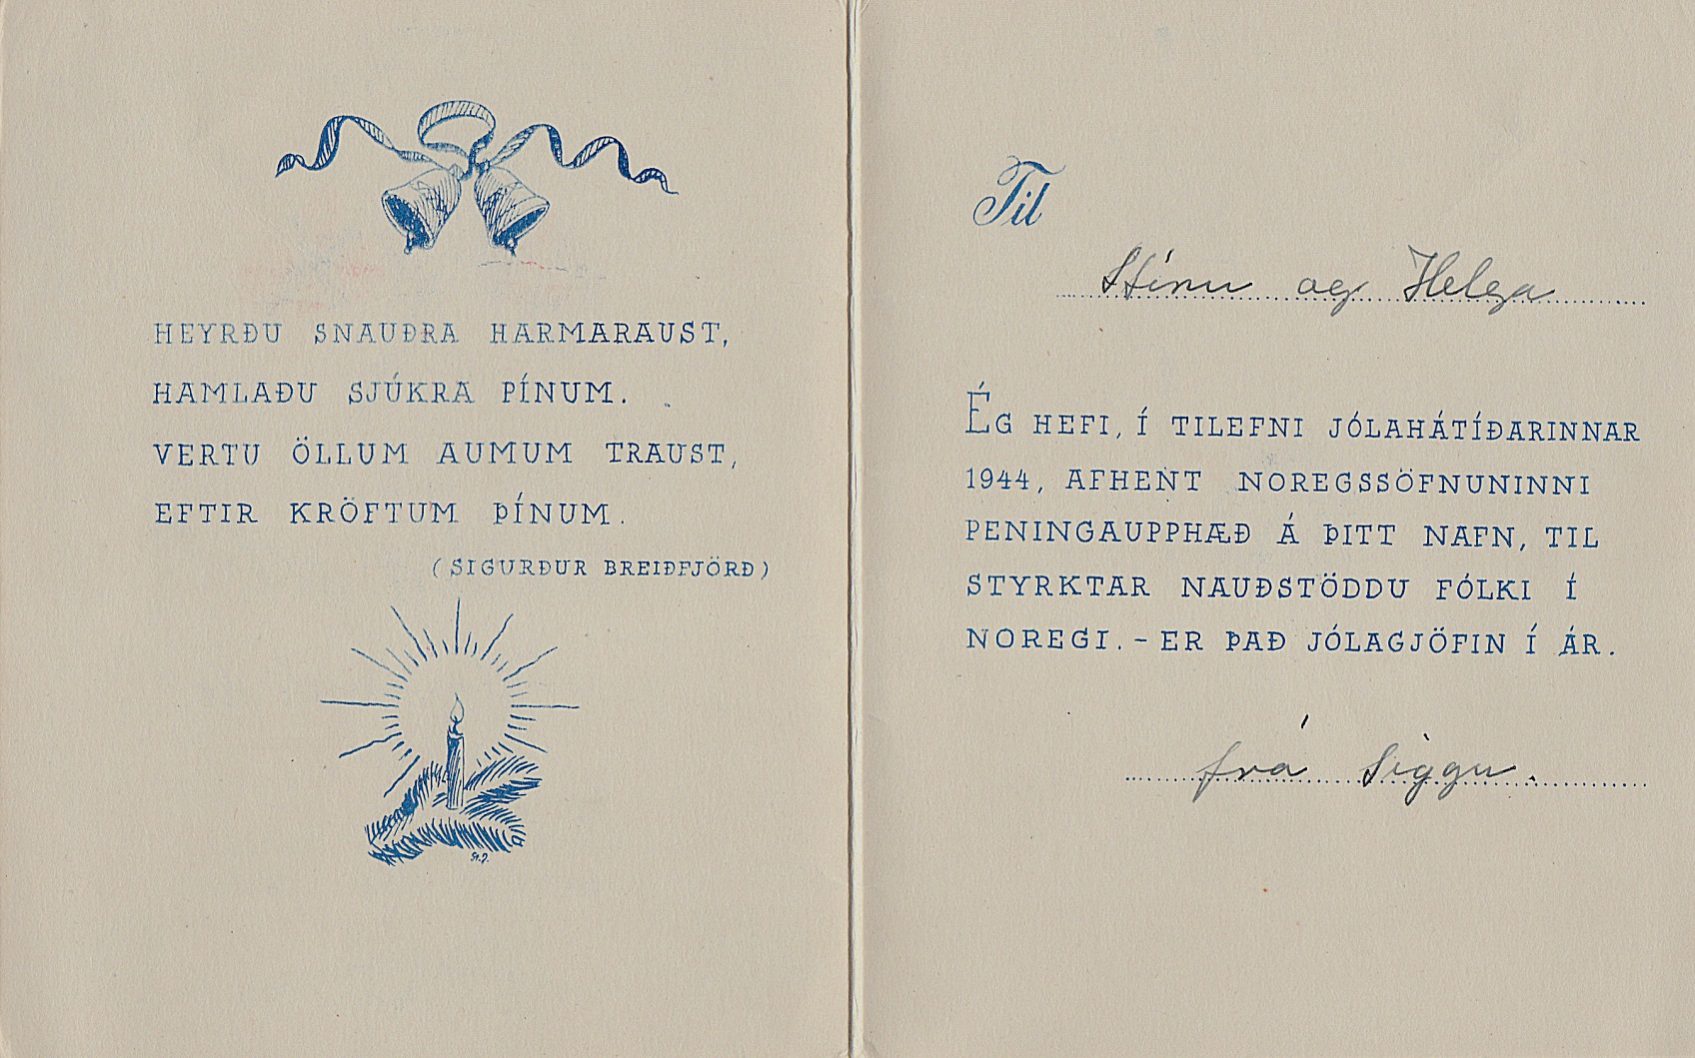 HEYRÐU SNAUÐRA HARMARAUST,
HAMLAÐU SJÚKRA PÍNUM.
VERTU ÖLLUM AUMUM TRAUST,
EFTIR KRÖFTUM ÞÍNUM.
(SIGURÐUR BREIÐFJÖRÐ)
St.J.
Til
Stínu og Helga
ÉG HEFI, Í TILEFNI JÓLAHÁTÍÐARINNAR
1944, AFHENT NOREGSSÖFNUNINNI
PENINGAUPPHÆÐ Á ÞITT NAFN, TIL
STYRKTAR NAUÐSTÖDDU FÓLKI Í
NOREGI. - ER ÞAÐ JÓLAGJÖFIN Í ÁR.
frá Siggu.